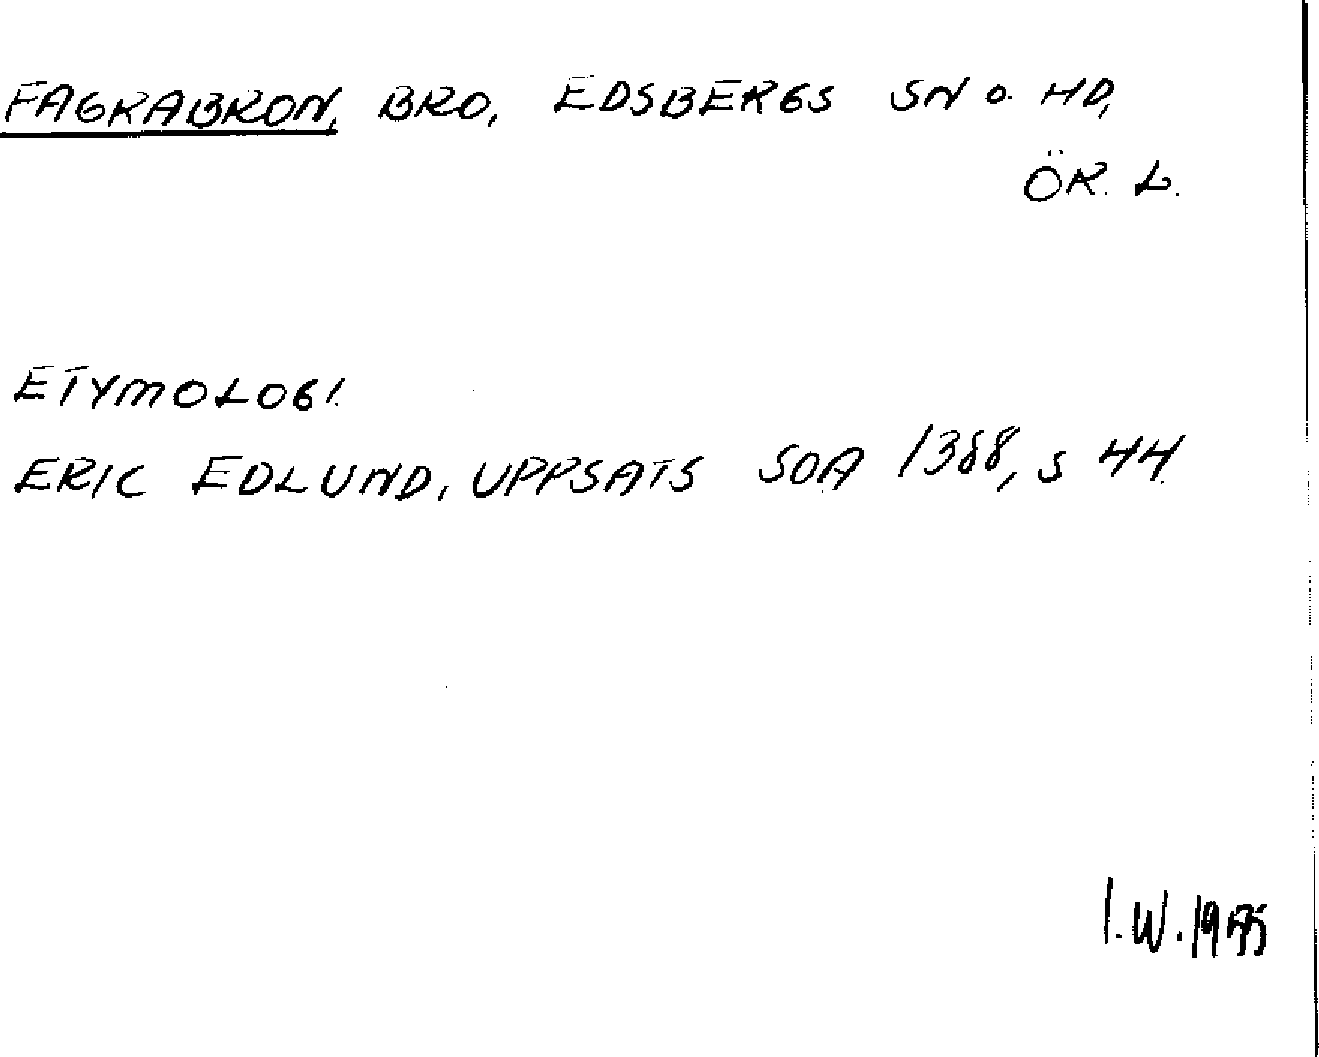 FAGRABRON, BRO, EDSBERGS SN O. HD,
ÖR. L.
ETYMOLOGI.
ERIC EDLUND, UPPSATS SOA 1388, S 44.
I.W.